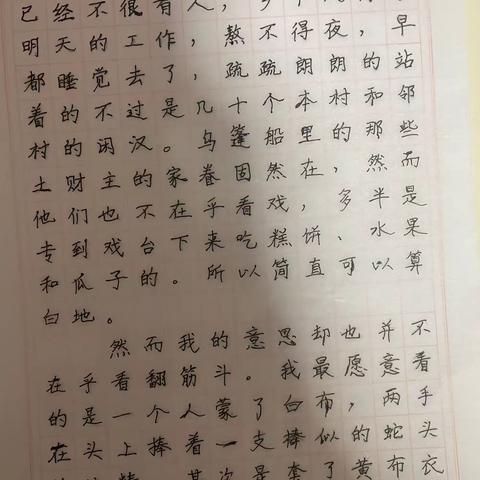 已经不很有人，
明天的工作，熬不得夜，早
都睡觉去了，疏疏朗朗的站
着的不过是几十个本村和邻
村的闲汉。乌篷船里的那些
土财主的家眷固然在，然而
他们也不在乎看戏，多半是
专到戏台下来吃糕饼、水果
和瓜子的。所以简直可以算
白地。
然而我的意思却也并不
在乎看翻筋斗。我最愿意看
的是一个人蒙了白布，两手
在头上捧着一支棒似的蛇头
其次是套了黄布衣